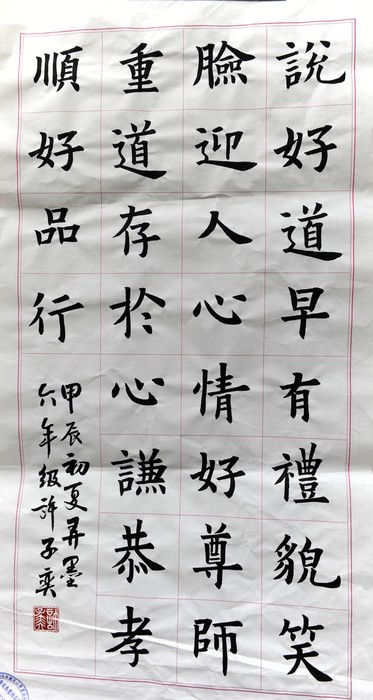 說好道早有禮貌笑
臉迎人心情好尊師
重道存於心謙恭孝
順好品行
甲辰初夏弄墨
六年級許子奕